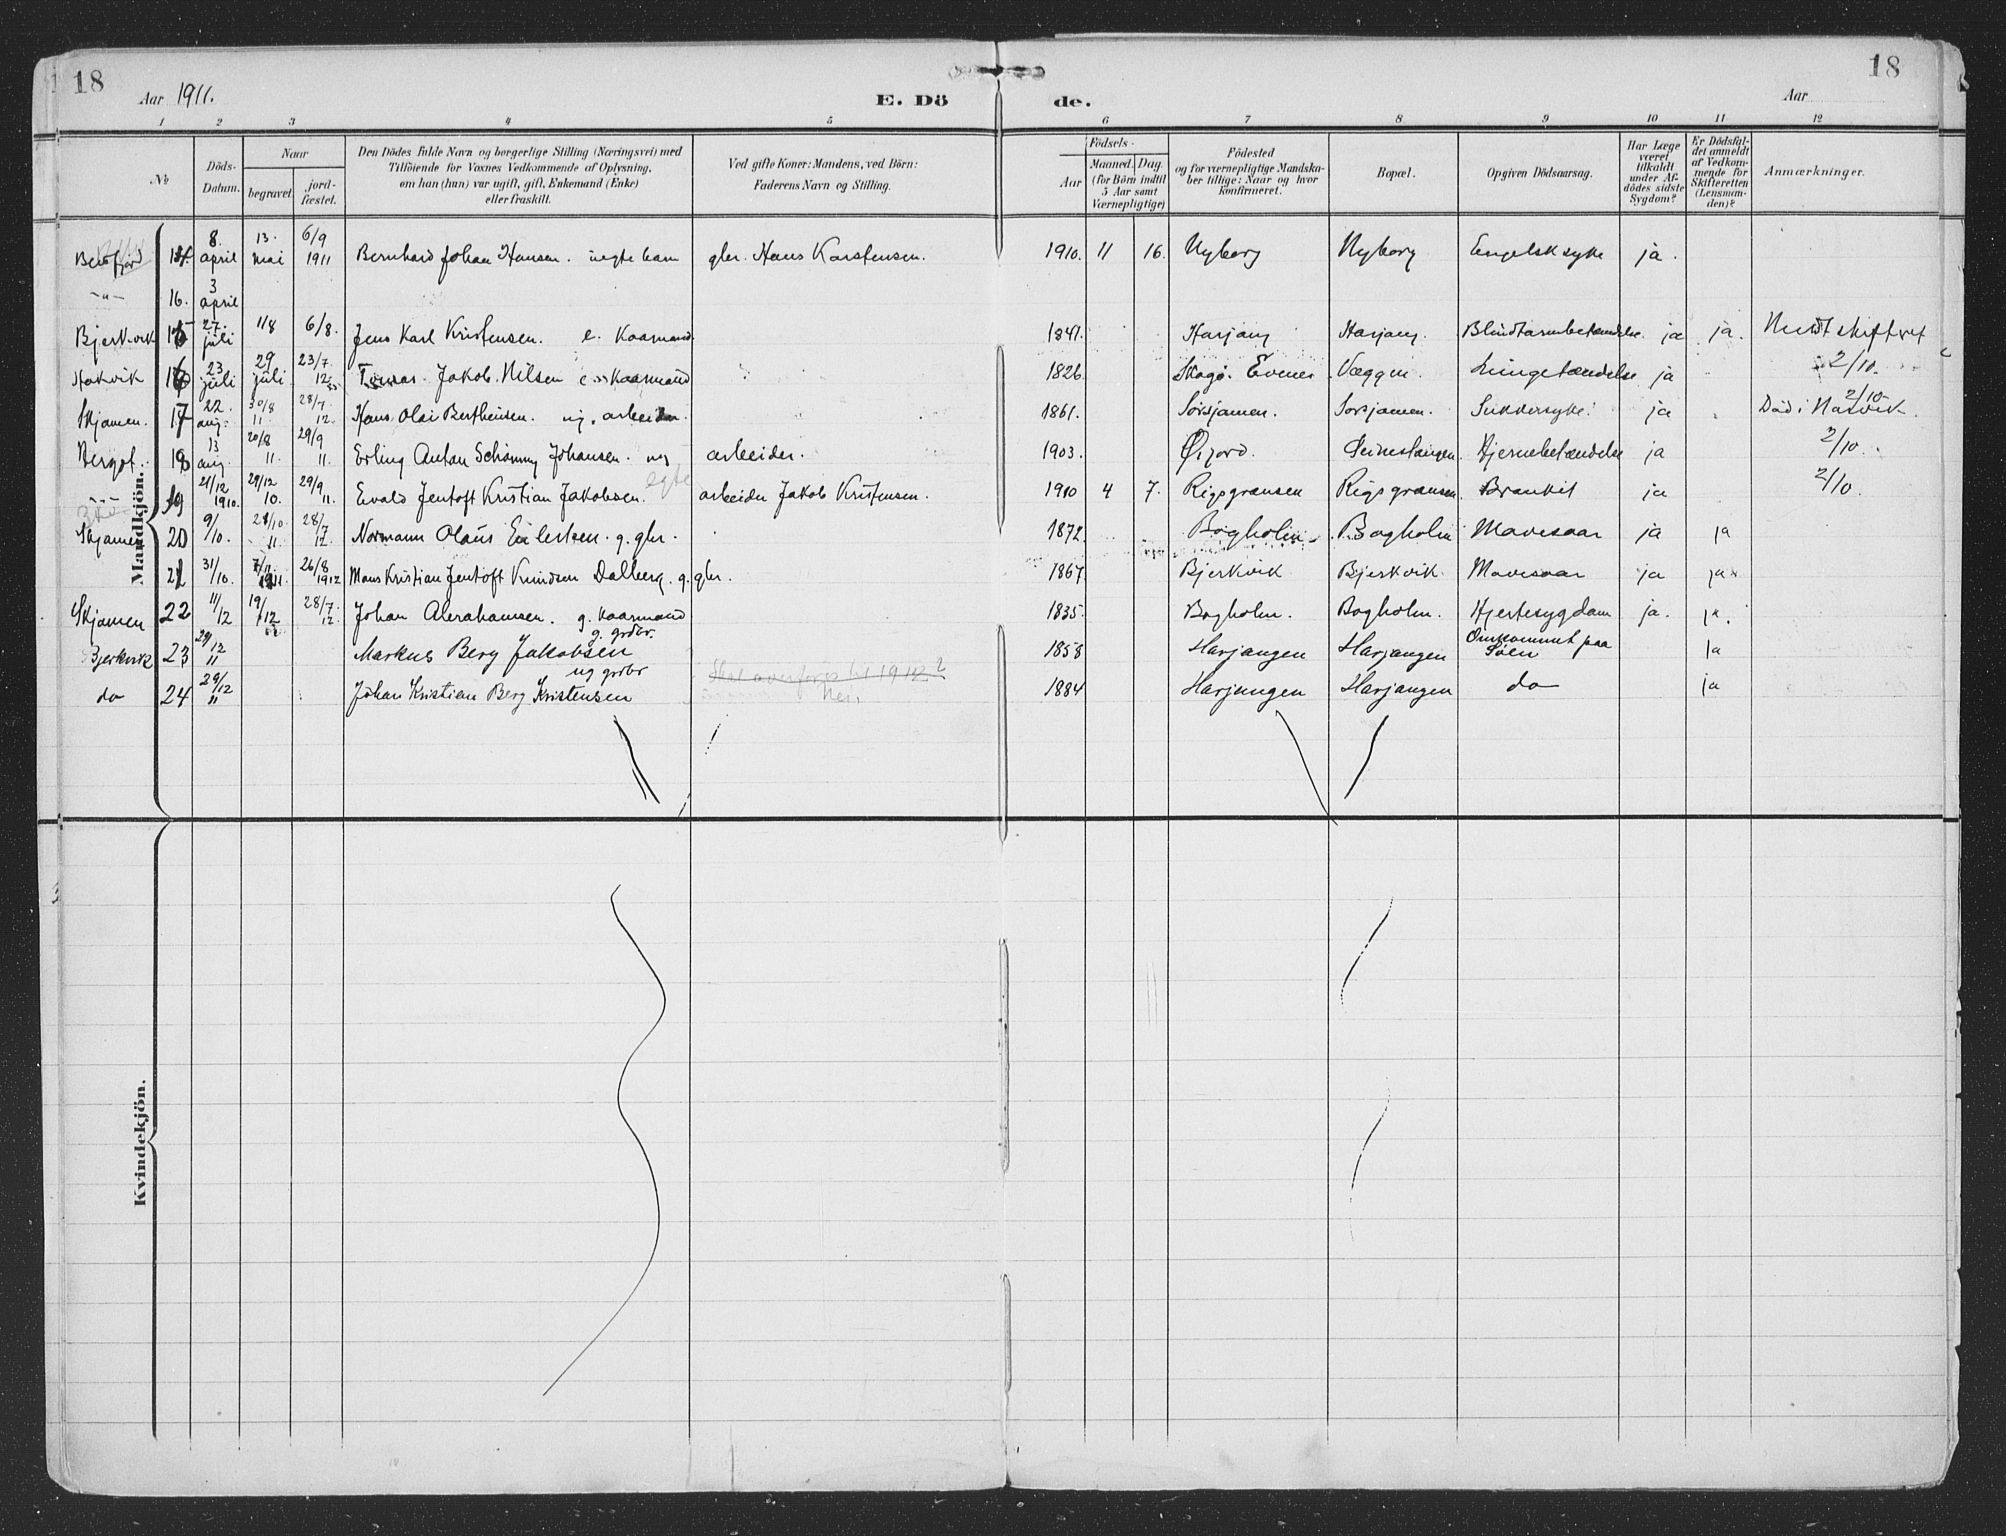 18
18
Aar 1911.
E. Döde.
Aar
1 2 3 4 5 6 7 8 9 10 11 12
No
Döds-Datum.
Naar
begravet
jord-fæstet.
Den Dödes fulde Navn og borgerlige Stilling (Næringsvei) med
Tilföiende for Voxnes Vedkommende af Oplysning,
om han (hun) var ugift, gift, Enkemand (Enke)
eller fraskilt.
Ved gifte Koner: Mandens, ved Börn:
Faderens Navn og Stilling.
Födsels-
Aar
Maaned. Dag.
(for Börn indtil
5 Aar samt
Værnepligtige)
Födested
og for værnepligtige Mandska-
ber tillige: Naar og hvor
konfirmeret.
Bopæl.
Opgiven Dödsaarsag.
Har Læge
været
tilkaldt
under Af-
dödes sidste
Sygdom?
Er Dödsfal-
det anmeldt
af Vedkom-
mende for
Skifteretten
(Lensman-
den)?
Anmærkninger.
14. 8. april 13. mai 6/9 1911 Bernhard Johan Hansen. uegte barn gbr. Hans Karstensen. 1910. 11 16. Nyborg Nyborg Engelsk syke ja.
-"- 16. 3 april
Bjerkvik 15 27. juli 1/8 6/8. Jens Karl Kristensen. e. Kaarmand 1841. Harjang Harjang. Blindtarmbetændelse. ja ja.
Hakvik 16 23 juli 29 juli 23/7. 12. Jakob Nilsen e. Kaarmand 1826. Evenes Væggen. Lungebetændelse ja 2/10.
Skjomen. 17 22. aug. 30/8 11 28/7. 12. Hans Olai Berthensen. ug. arbeider. 1861. Sørsjomen. Sorsjomen. Sukkersyke. ja Död i Narvik. 2/10
18 13 aug. 20/8 11. 29/9 11. Erling Anton Johansen. ug arbeider. 1903. Øijord. Hjernebetændelse ja 2/10.
19 21/12 1910. 29/12 10. 29/9 11. Evald Jentoft Kristian Jakobsen. egte arbeider Jakob Kristensen. 1910 4 7. Rigsgrænsen Rigsgrænsen ja 2/10.
Skjomen 20 9/10. 28/7 Normann Olaus Eilertsen. g. gbr. 1872. Bogholm Bogholm Mavesaar ja ja
21 31/10. 7/11 1911. 26/8 1912 Mons Kristian Jentoft Knudsen Dalberg. g. gbr. 1867. Bjerkvik Bjerkvik. Mavesaar ja ja
Skjomen 22 11/12 19/12 28/7. 12. Johan Abrahamsen. g. Kaarmand 1835. Bogholm. Bogholm. Hjertesygdom ja. ja.
Bjerkvik 23 29/12 11 Markus Berg Jakobsen g. grdbr. 1858 Harjangen Harjangen Omkommet paa Søen ja
do 24 29/12 11 Johan Kristian Berg Kristensen ug grdbr Skal overføres til 1912? Nei. 1884 Harjangen Harjangen do ja
Mandkjön.
Kvindekjön.